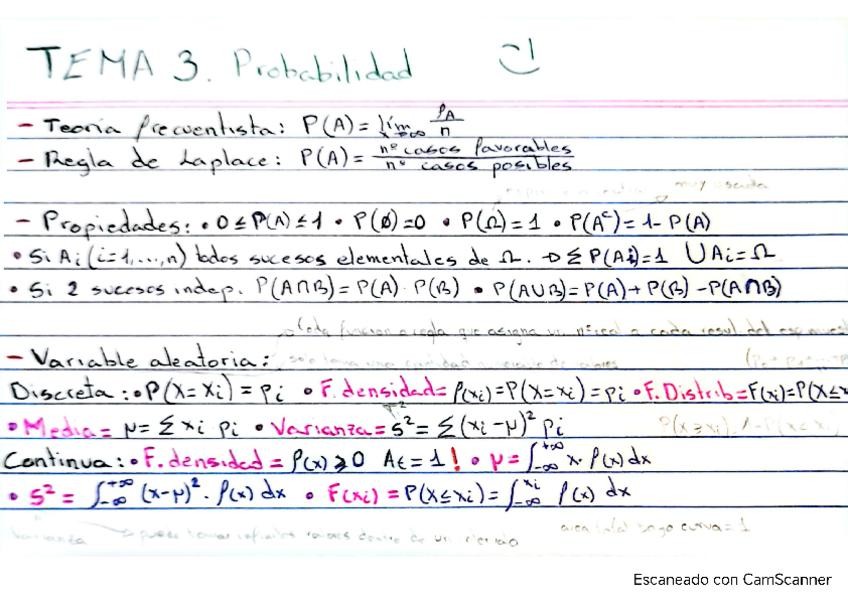 TEMA 3. Probabilidad
- Teoría frecuentista: P(A) = lím fA/n
- Regla de Laplace: P(A) = nº casos favorables / nº casos posibles
muy usada
- Propiedades: • 0 ≤ P(A) ≤ 1 • P(Ø) = 0 • P(Ω) = 1 • P(Aᶜ) = 1 - P(A)
• Si Ai (i=1,...,n) todos sucesos elementales de Ω. → Σ P(Ai) = 1 ⋃Ai = Ω
• Si 2 sucesos indep. P(A∩B) = P(A) · P(B) • P(A∪B) = P(A) + P(B) - P(A∩B)
función o regla que asigna un nº real a cada resul. del
- Variable aleatoria:
Discreta: • P(X=xi) = pi • F. densidad = f(xi) = P(X=xi) = pi • F. Distrib = F(xi) = P(X≤x
• Media = μ = Σ xi pi • Varianza = S² = Σ (xi - μ)² pi
Continua: • F. densidad = f(x) ≥ 0 At = 1! • μ = ∫₋∞⁺∞ x · f(x) dx
• S² = ∫₋∞⁺∞ (x-μ)² · f(x) dx • F(xi) = P(X≤xi) = ∫₋∞ˣⁱ f(x) dx
varianza → puede tomar infinitos valores dentro de un curva = 1
Escaneado con CamScanner